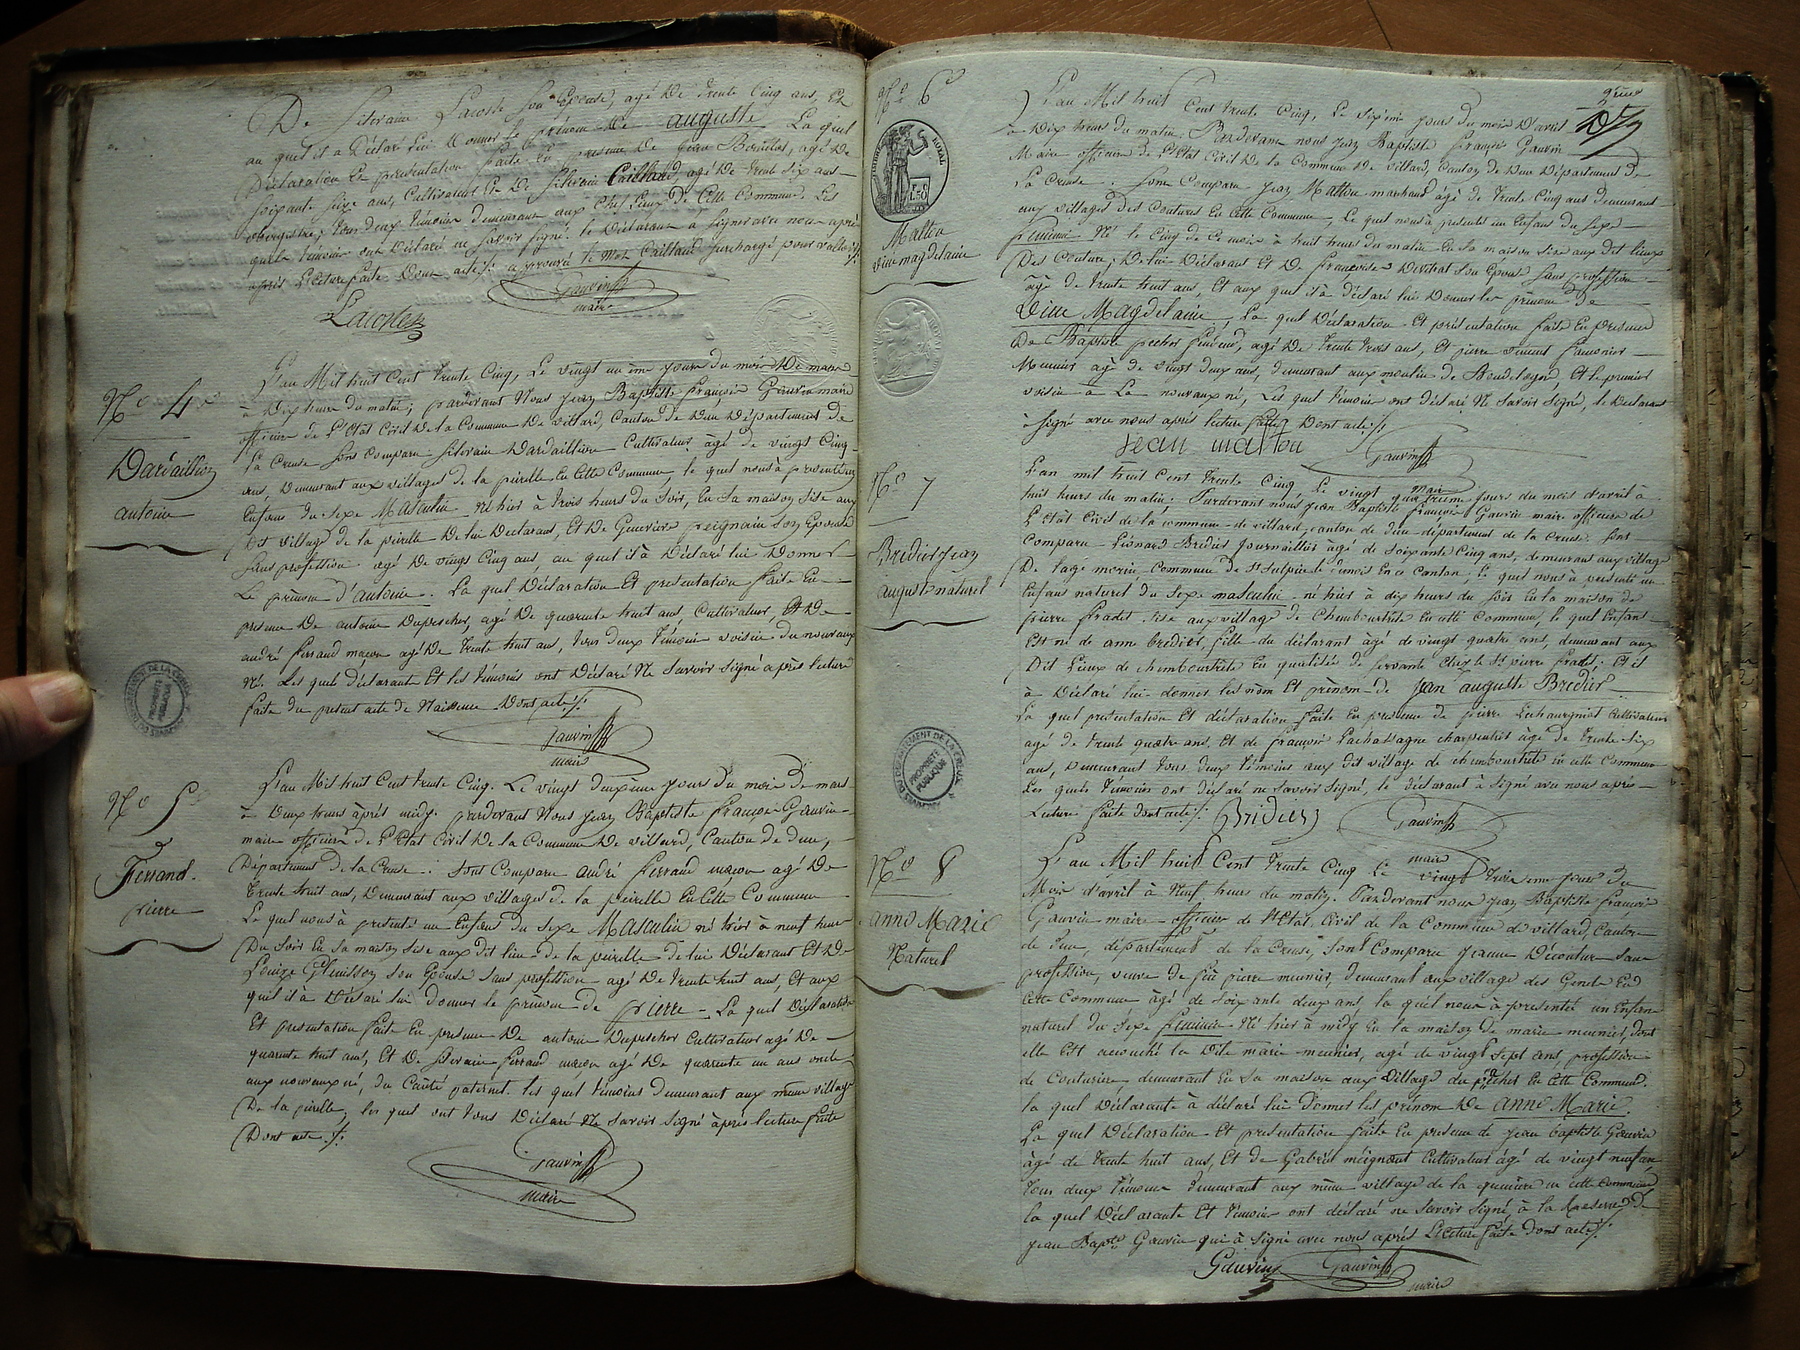 De Silvraine Lacoste son Epouse, agé De trente Cinq ans, Et
au quel il à Déclaré lui Donner le prénom De auguste La quel
Déclaration Et presentation faite En presence De jean agé De
soixante seize ans, Cultivateur Et De Silvrain Caillaud, agé De trente six ans
tous deux témoins demeurant aux Chef Lieux De Cette Commune. Les
quels témoins ont Déclaré ne savoir signé. le Déclarant à signé avec nous après
après Lecture faite Dont acte ./. approuvé le Mot Caillaud surchargé pour valloir ./.
Gauvin
maire
Lacoste
N° 4
Dardaillion
antoine
L'an Mil huit Cent trente Cinq, Le vingt un eme jours du mois De mars
à Dix heure du matin; pardevant Nous jean Baptiste françois Gauvin maire
officier de l'Etat Civil De la Commune De villard, Canton de Dun Département de
La Creuse sont Comparu Silvrain Dardaillion Cultivateur âgé de vingt Cinq
ans, Demeurant aux villages de la peirelle En Cette Commune, le quel nous à presenté un
Enfans du sexe Masculin né hier à trois heurs du soir, En sa maison sise aux
Dit village de la peirelle De lui Declarans, Et De Genevieve peignain son Epouse
sans profession agé De vingt Cinq ans, au quel il à Déclaré lui Donner
Le prénom d'antoine. La quel Déclaration Et presentation faite En
presence De antoine Dupeicher, agé De quarente huit ans, Cultivateur, Et De
andré ferrand maçon agé De trente huit ans, tous deux témoins voisin du nouveaux
né. Les quels déclarants Et les témoins ont Déclaré Ne savoir signé après lecture
faite du present acte de Naissence Dont acte ./.
Gauvin
maire
N° 5
Ferrand
pierre
L'an Mil huit Cent trente Cinq. Le vingt deuxième jours du mois de mars
à Deux heurs après midy. pardevant Nous jean Baptiste françois Gauvin
maire officier de l'Etat Civil De la Commune De villard, Canton de dun,
Département de la Creuse. sont Comparu andré ferrand maçon agé De
trente huit ans, Demeurant aux villages de la peirelle En Cette Commune
Le quel nous à presenté un Enfans du sexe Masculin né hier à neuf heurs
Du soir En sa maison sise aux dit lieu de la peirelle De lui Déclarant Et De
Louise son Epouse sans profession agé De trente huit ans, Et aux
quel il à Déclaré lui donner le prénom de pierre La quel Déclaration
Et presentation faite En presence De antoine Dupeicher Cultivateur agé De
quarente huit ans, Et De Silvrain ferrand maçon agé De quarente un ans oncle
aux nouveaux né, du Cauté paternel. les quel témoins demeurant aux même village
De la peirelle, les quel ont tous Déclaré Ne savoir signé après lecture faite
Dont acte ./.
Gauvin
maire
DÉPARTEMENT DE LA CREUSE
PROPRIÉTÉ PUBLIQUE
N° 6
TIMBRE ROYAL
Mattou
vine magdelaine
2ème
L'an Mil huit Cent trente Cinq, Le sixème jours du mois D'avril
à Dix heurs du matin. Pardevant nous jean Baptiste françois Gauvin
Maire officier de l'Etat Civil De la Commune De villard, Canton De Dun Département De
La Creuse. sont Comparu jean Mattou marchand âgé de trente Cinq ans demeurant
aux villages des Coutures En cette Commune, Le quel nous à presenté un Enfans du sexe
feminin Né le Cinq de Ce mois à huit heurs du matin En sa maison sise aux dit lieux
Des Couture; De lui Déclarant Et De françoise son Epouse sans profession
âgé de trente huit ans, Et aux quel il à déclaré lui Donner les prénom De
Vine Magdelaine, La quel Déclaration Et présentation faite En presence
De Baptiste agé De trente trois ans, Et pierre vincent
Meunier âgé de vingt deux ans, demeurant aux moulin de Et le premier
voisin à La nouvaux né, Les quel témoins ont déclaré Ne savoir signé, le Declarant
à signé avec nous après lecture faite Dont acte ./.
jean mattou
Gauvin
maire
N° 7
Bridier jean
auguste naturel
L'an mil huit Cent trente Cinq, Le vingt quatrieme jours du mois d'avril à
huit heurs du matin; Pardevant nous jean Baptiste françois Gauvin maire officier de
l'Etat Civil de la commune de villard, canton de dun département de la Creuse. sont
Comparu Léonard Bridier journaillier âgé de soixante Cinq ans, demeurant aux village
De Lage morin Commune de St sulpice le dunois En ce Canton, Le quel nous à presenté un
Enfans naturel du sexe masculin né hier à dix heurs du soir En la maison de
pierre fradet sise aux village de chemboutrete En cette Commune, le quel Enfans
Est né de anne bredier, fille du déclarant âgé de vingt quatre ans, demeurant aux
Dit Lieux de chemboutrete En qualitée de servante Chez le St pierre fradet; Et il
à Déclaré lui donner les nom Et prénom de jean auguste Bredier
La quel presentation Et déclaration faite En presence de pierre Lechaugniot Cultivateur
agé de trente quatre ans. Et de françois Lachassagne charpentier âgé de trente six
ans, Demeurant tous deux témoins aux dit village de chemboutrete en cette Commune
Les quels témoins ont déclaré ne savoir signé, le déclarant à signé avec nous après
Lecture faite dont acte ./. Bridier
Gauvin
maire
DÉPARTEMENT DE LA CREUSE
PROPRIÉTÉ PUBLIQUE
N° 8
Anne Marie
Naturel
L'an Mil huit Cent trente Cinq Le vingt trois eme jour du
Mois d'avril à Neuf heurs du matin. Pardevant nous jean Baptiste françois
Gauvin maire officier de l'Etat Civil de la Commune de villard Canton
de Dun, département de la Creuse, sont Comparu Jeanne Découtur sans
profession, veuve de feu pierre meunier, demeurant aux village des En
Cette Commune âgé de soixante deux ans, la quel nous à presenté un Enfans
naturel du sexe feminin Né hier à midy En la maison de marie meunier, dont
elle Est accouché la Dite marie meunier, agé de vingt sept ans, profession
de Couturiere demeurant En sa maison aux village du En cette Commune.
la quel Déclarante à déclaré lui donner les prénom De Anne Marie.
La quel Déclaration Et presentation faite En presence de jean baptiste Gauvin
âgé de trente huit ans, Et de Gabriel meignant Cultivateur âgé de vingt neuf ans
tous deux témoins demeurant aux même village de la en cette Commune
La quel Déclarante Et témoin ont déclaré ne savoir signé, à la Reserve de
jean Bapte Gauvin qui à signé avec nous après Lecture faite dont acte ./.
Gauvin
Gauvin
maire